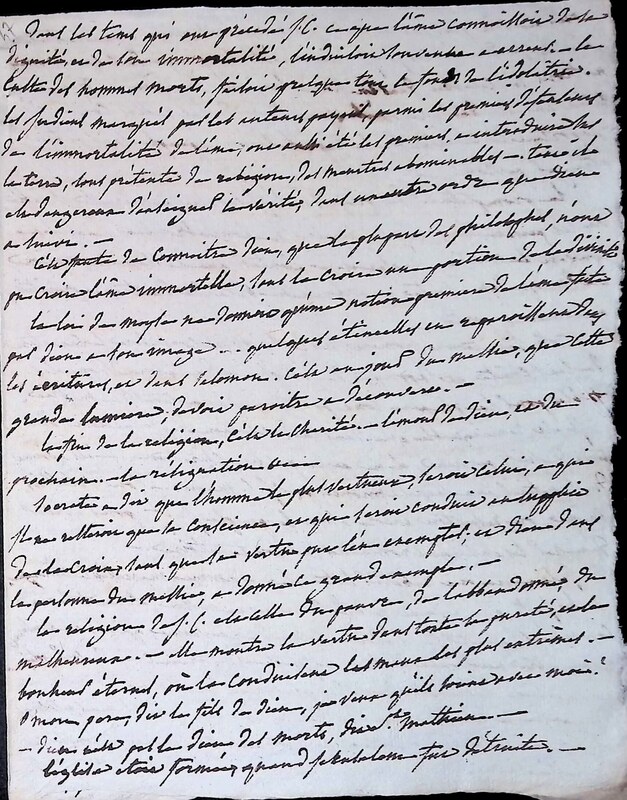 dans les tems qui ont précédé J.C. ce que l'âme connoissoit de sa
dignité, et de son immortalité, l'induisoit souvent a erreur. — le
culte des hommes morts, faisoit presque tout le fond de l'idolatrie.
les
de l'immortalité de l'âme, ont aussi été les premiers a introduire sur
la terre, sous prétexte de religion, des meurtres abominables. — tant il
est dangereux d'enseigner la vérité, dans un autre ordre que dieu
a suivi. —
C'est faute de connoitre dieu, que la plupart des philosophes, n'ont
pu croire l'âme immortelle, sans la croire une portion de la divinité
la loi de moyse ne donnoit qu'une notion premiere de l'âme faite
par dieu a son image. . quelques étincelles en rejaillissent dans
les écritures, et dans Salomon. C'est au jour du messie, que cette
grande lumiere, devoit paroitre a découvert. —
la fin de la religion, c'est la charité. — l'amour de dieu, et du
prochain. — la résignation
Socrate a dit que l'homme le plus vertueux, seroit celui, a qui
il ne resteroit que la conscience, et qui seroit conduit au supplice
de la croix, sans que la vertu put l'en exempter; et dieu dans
la personne du messie, a donné ce grand exemple. —
la religion de J.C. est celle du pauvre, de l'abbandonné, du
malheureux. — elle montre la vertu dans toute sa pureté, et le
bonheur éternel, où la conduisent les maux les plus extrêmes. —
o mon pere, dit le fils de dieu, je veux qu'ils soient avec moi!
— dieu n'est pas le dieu des morts, dit St. mathieu. —
l'église etoit formée, quand jerusalem fut détruite. —